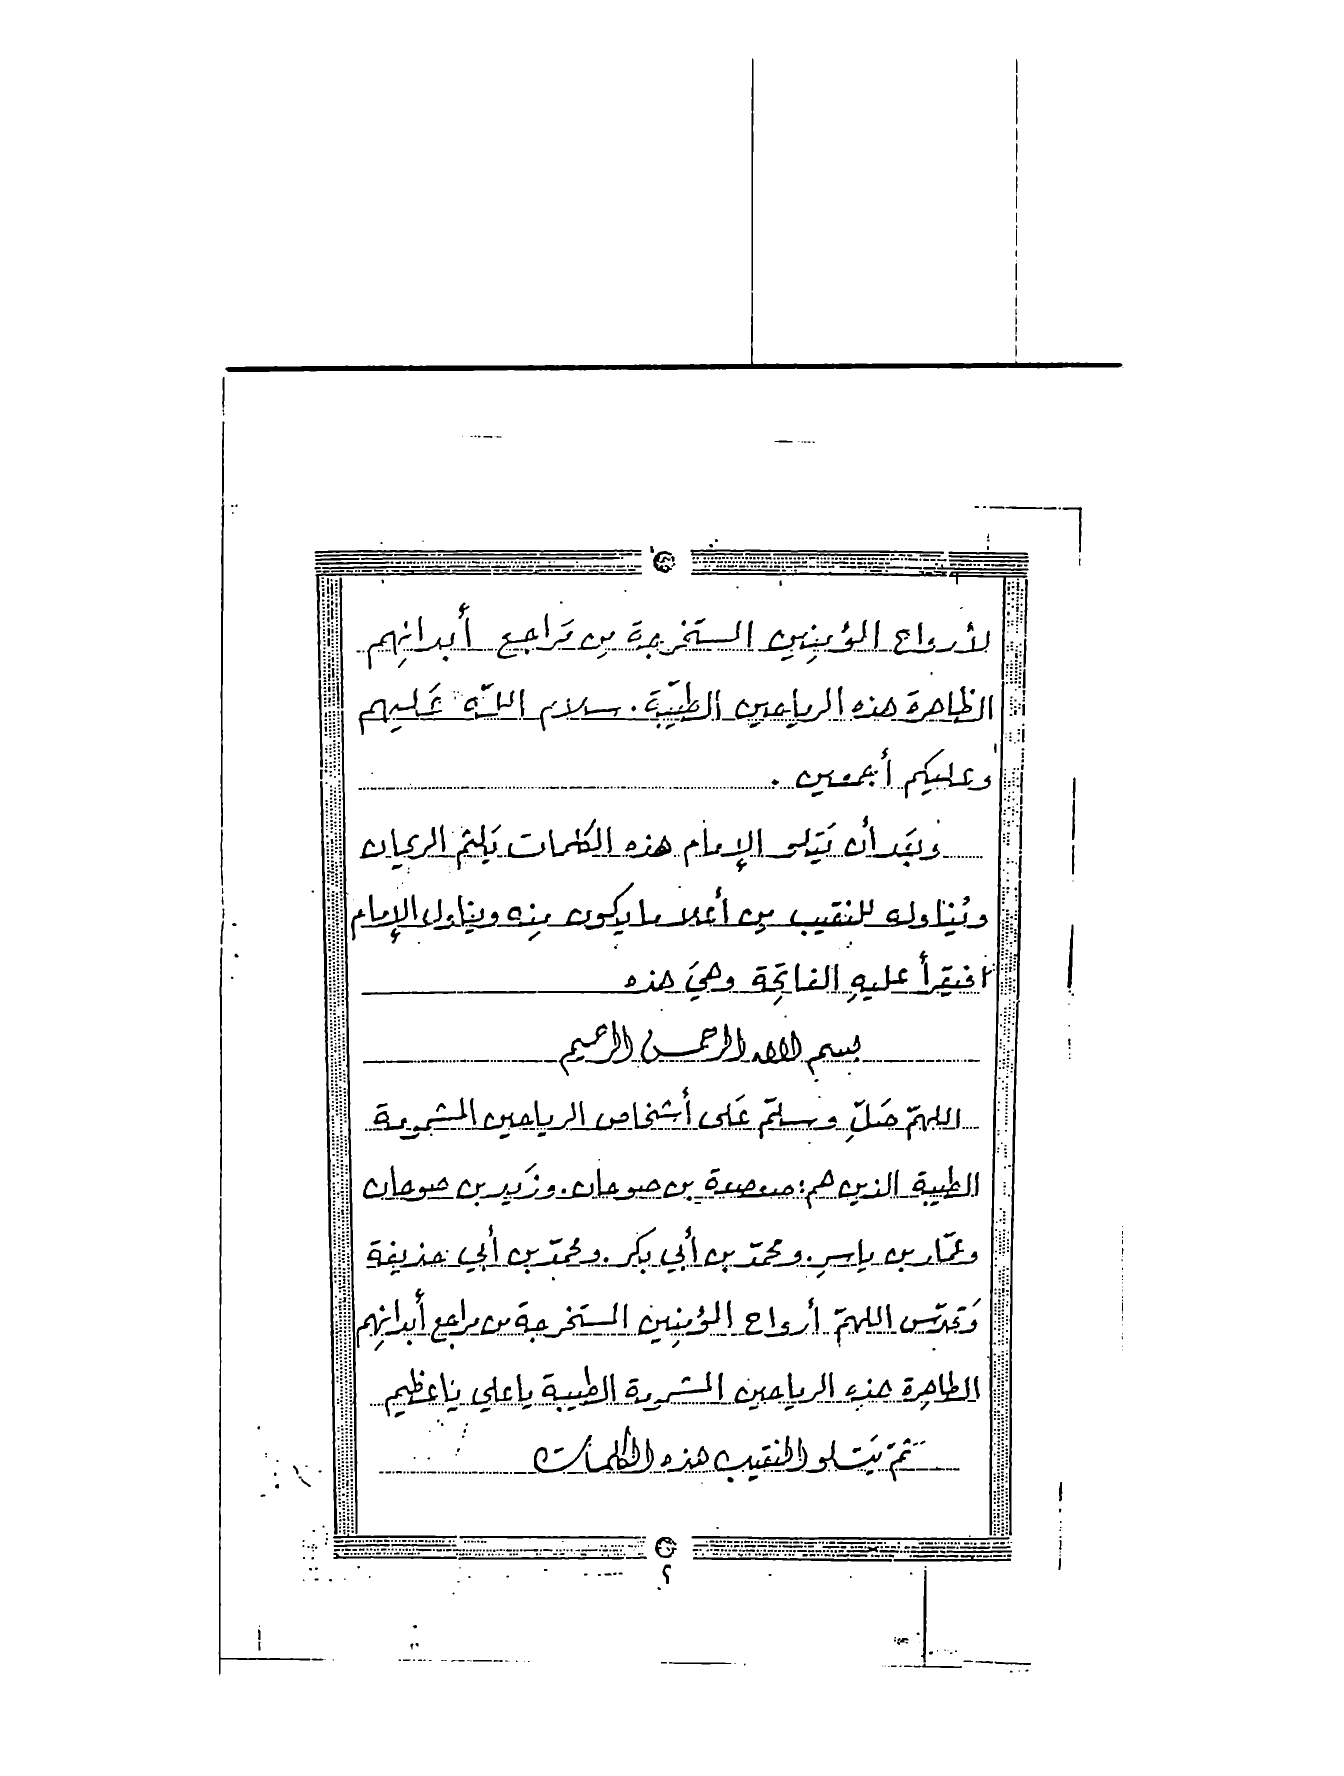 لأرواح المؤمِنِين المستَخرجة مِن مَراجع أبدانِهم
الظاهرة هذه الرياحين الطيّبة. سلام اللّه عَليهم
وعليكم أجمعين .
وبَعد أن يَتلو الإمام هذه الكلمات يَلثم الريحان
ويُناوله للنقيب مِن أعلا ما يكون مِنه ويناول الإمام
فيَقرأ عليهِ الفاتِحة وهيَ هذه
بسم الله الرحمن الرحيم
اللهمّ صَلّ وسلّم عَلى أشخاص الرياحين المشمومة
الطيبة الذين هم: صعصعة بن صوحان. وزَيد بن صوحان
وعمّار بن ياسرِ. ومحمّد بن أبي بكر. ومحمّد بن أبي حذيفة
وَتقدّس اللهمّ أرواح المؤمِنِين المستَخرجة من مراجع أبدانِهم
الطاهِرة هذه الرياحين المشمومة الطيبة يا علي يا عظيم
ثمّ يَتلو النقيب هذه الكلمات
٢